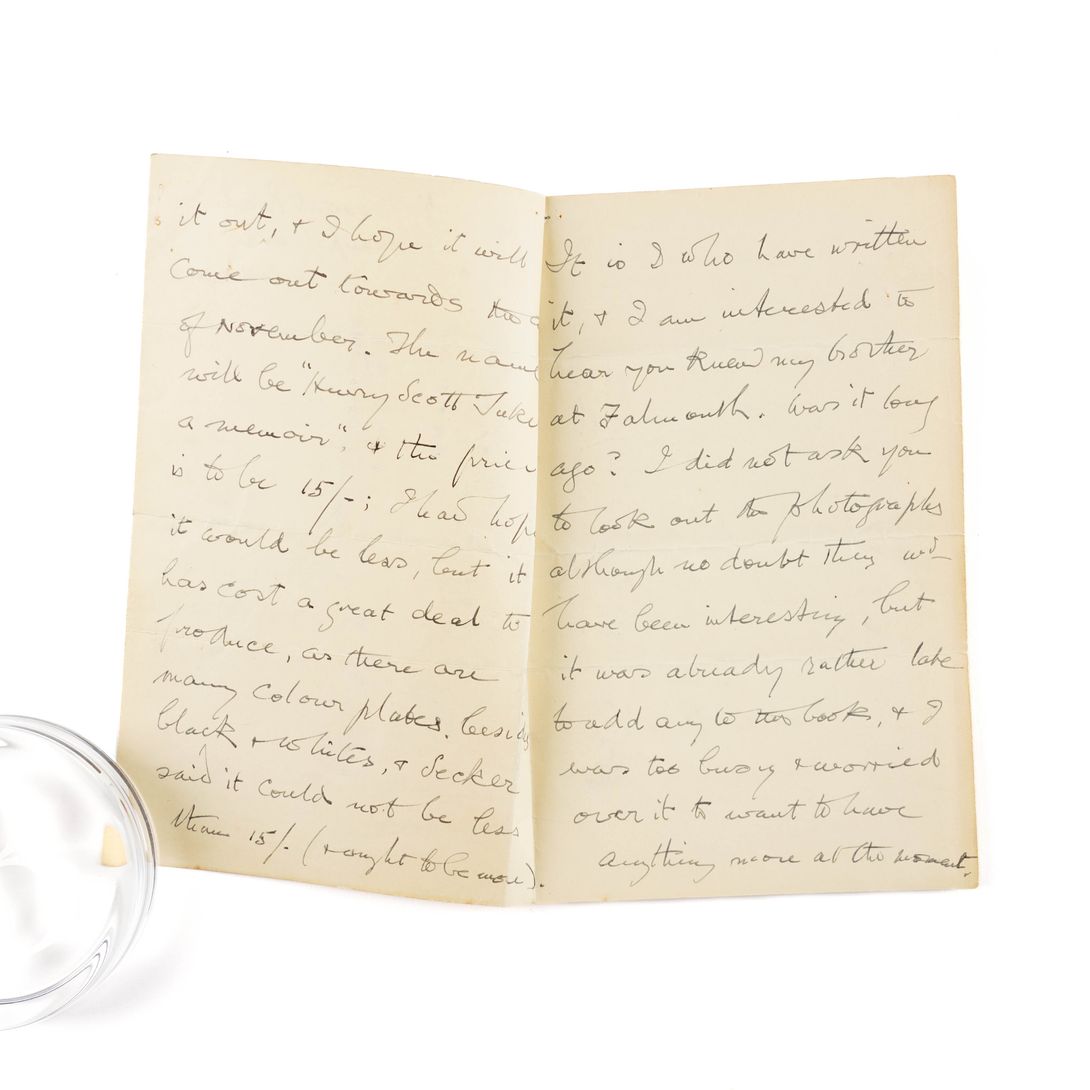 it out, & I hope it will
come out towards the
of November. The name
will be "Henry Scott Tuke
a memoir", & the price
is to be 15/-; I had hope
it would be less, but it
has cost a great deal to
produce, as there are
many colour plates, besid
black & whites, & Secker
said it could not be less
than 15/- (& ought to be more).
It is I who have written
it, & I am interested to
hear you knew my brother
at Falmouth. Was it long
ago? I did not ask you
to look out the photographs
although no doubt they wd
have been interesting, but
it was already rather late
to add any to the book, & I
was too busy & worried
over it to want to have
anything more at the moment.